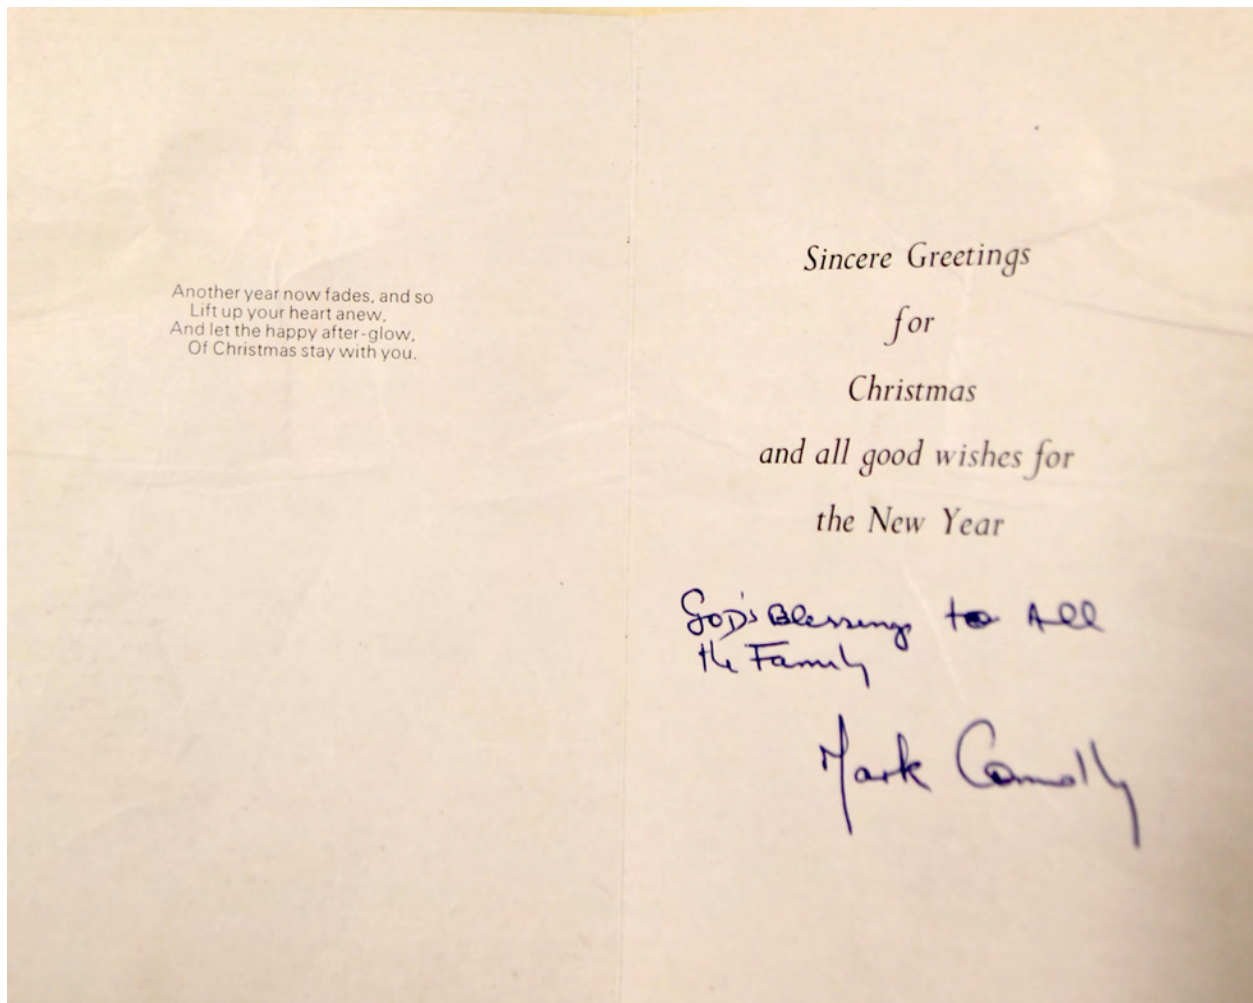 Another year now fades, and so
Lift up your heart anew,
And let the happy after-glow,
Of Christmas stay with you.
Sincere Greetings
for
Christmas
and all good wishes for
the New Year
GOD's Blessings to All
the Family
Mark Connolly